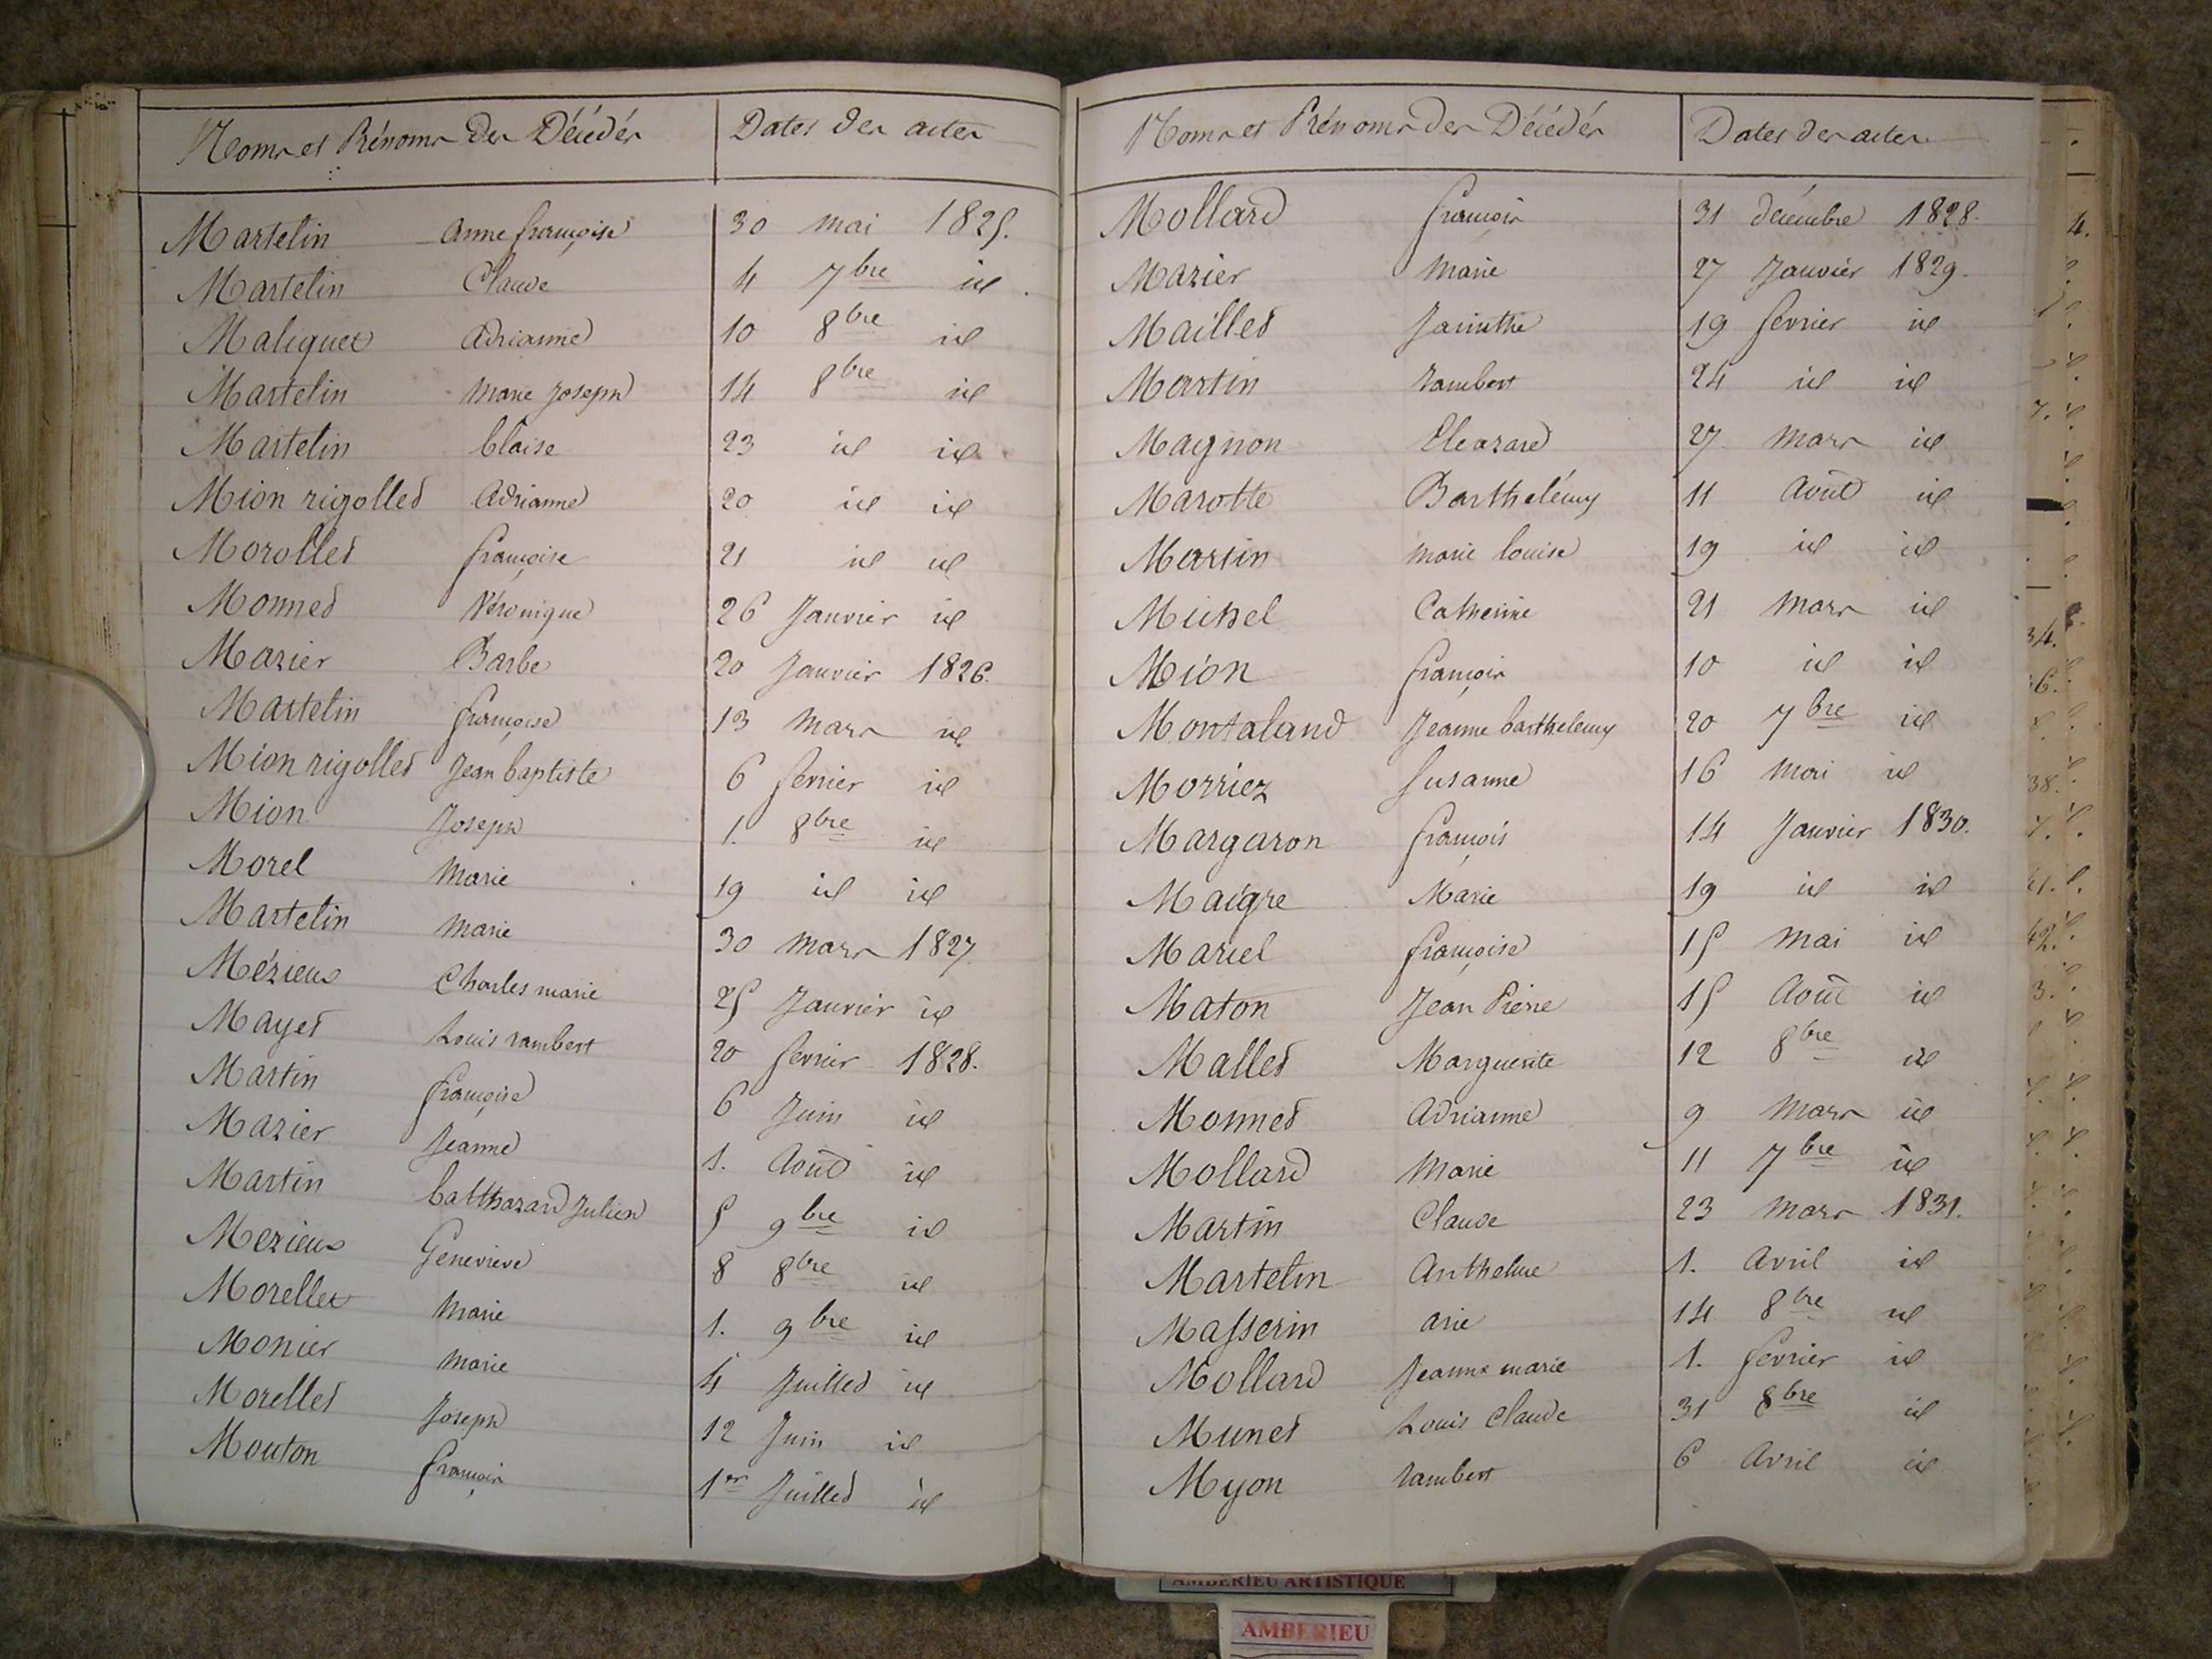 Noms et Prénoms des Décédés Dates des actes
Martelin Anne françoise 30 mai 1825.
Martelin Claude 4 7bre id.
Maliquet Adrianne 10 8bre id
Martelin Marie Joseph 14 8bre id
Martelin blaise 23 id id
Mion rigollet Adrianne 20 id id
Morollet françoise 21 id id
Monnet Véronique 26 Janvier id
Mazier Barbe 20 Janvier 1826.
Martelin françoise 13 Mars id
Mion rigollet Jean baptiste 6 fevrier id
Mion Joseph 1. 8bre id
Morel Marie 19 id id
Martelin Marie 30 mars 1827
Mézieux Charles marie 25 Janvier id
Mayet Louis rambert 20 fevrier 1828.
Martin françoise 6 Juin id
Mazier Jeanne 1. Août id
Martin balthazard Julien 5 9bre id
Mezieux Genevieve 8 8bre id
Morellet Marie 1. 9bre id
Monier Marie 4 Juillet id
Morellet Joseph 12 Juin id
Mouton françois 1er Juillet id
Noms et Prénoms des Décédés Dates des actes
Mollard françois 31 décembre 1828.
Mazier Marie 27 Janvier 1829.
Maillet Jacinthe 19 fevrier id
Martin rambert 24 id id
Magnon Eleazard 27 Mars id
Marotte Barthelémy 11 Août id
Martin marie louise 19 id id
Michel Catherine 21 Mars id
Mion françois 10 id id
Montaland Jeanne barthelemy 20 7bre id
Morriez Susanne 16 Mai id
Margaron françois 14 Janvier 1830.
Maigre Marie 19 id id
Mariel françoise 15 Mai id
Maton Jean Pierre 15 Août id
Mallet Marguerite 12 8bre id
Monnet Adrianne 9 Mars id
Mollard Marie 11 7bre id
Martin Claude 23 Mars 1831.
Martelin Anthelme 1. Avril id
Masserin arie 14 8bre id
Mollard Jeanne marie 1. fevrier id
Munet Louis Claude 31 8bre id
Myon rambert 6 Avril id
AMBERIEU ARTISTIQUE
AMBERIEU